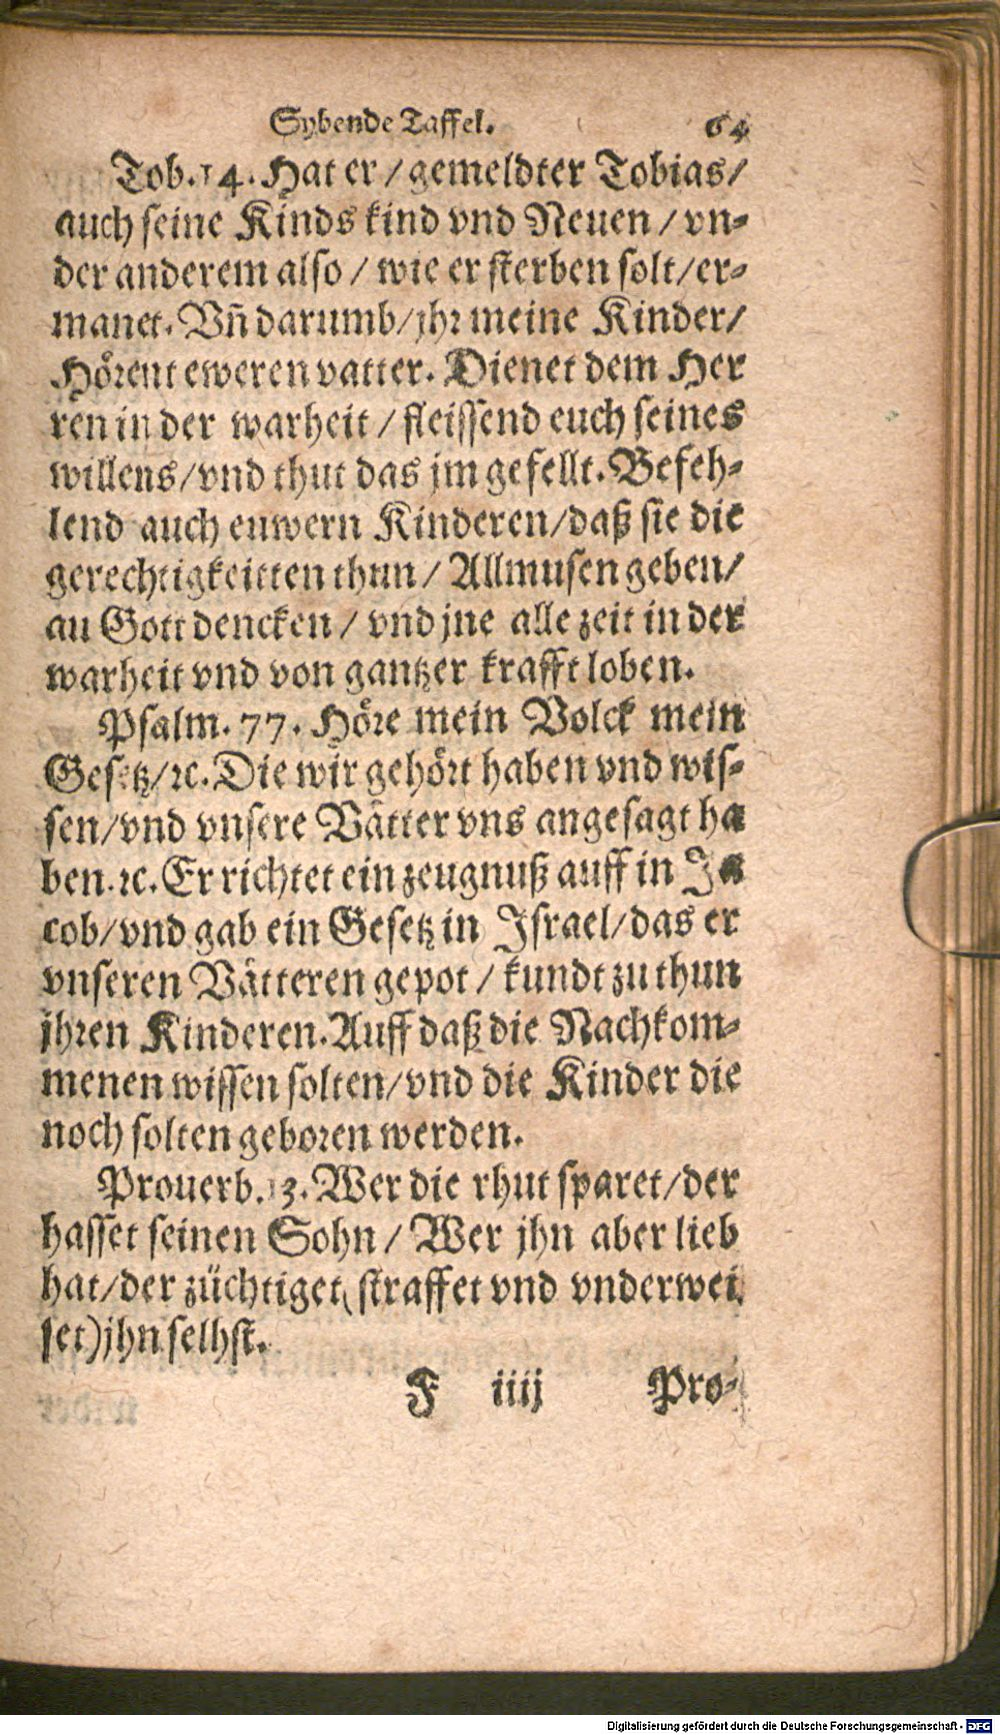 Sybende Taffel. 64
Tob. 14. Hat er / gemeldter Tobias /
auch seine Kinds kind vnd Neuen / vn-
der anderem also / wie er sterben solt / er-
manet. Vñ darumb / jhr meine Kinder /
Hörent eweren vatter. Dienet dem Her
ren in der warheit / fleissend euch seines
willens / vnd thut das jm gefellt. Befeh-
lend auch euwern Kinderen / daß sie die
gerechtigkeitten thun / Allmusen geben /
an Gott dencken / vnd jne alle zeit in der
warheit vnd von gantzer krafft loben.
Psalm. 77. Höre mein Volck mein
Gesetz / ꝛc. Die wir gehört haben vnd wis-
sen / vnd vnsere Vätter vns angesagt ha
ben. ꝛc. Er richtet ein zeugnuß auff in Ja
cob / vnd gab ein Gesetz in Israel / das er
vnseren Vätteren gepot / kundt zu thun
jhren Kinderen. Auff daß die Nachkom-
menen wissen solten / vnd die Kinder die
noch solten geboren werden.
Prouerb. 13. Wer die rhut sparet / der
hasset seinen Sohn / Wer jhn aber lieb
hat / der züchtiget (straffet vnd vnderwei
set) jhn selbst.
F iiij Pro-
Digitalisierung gefördert durch die Deutsche Forschungsgemeinschaft - DFG